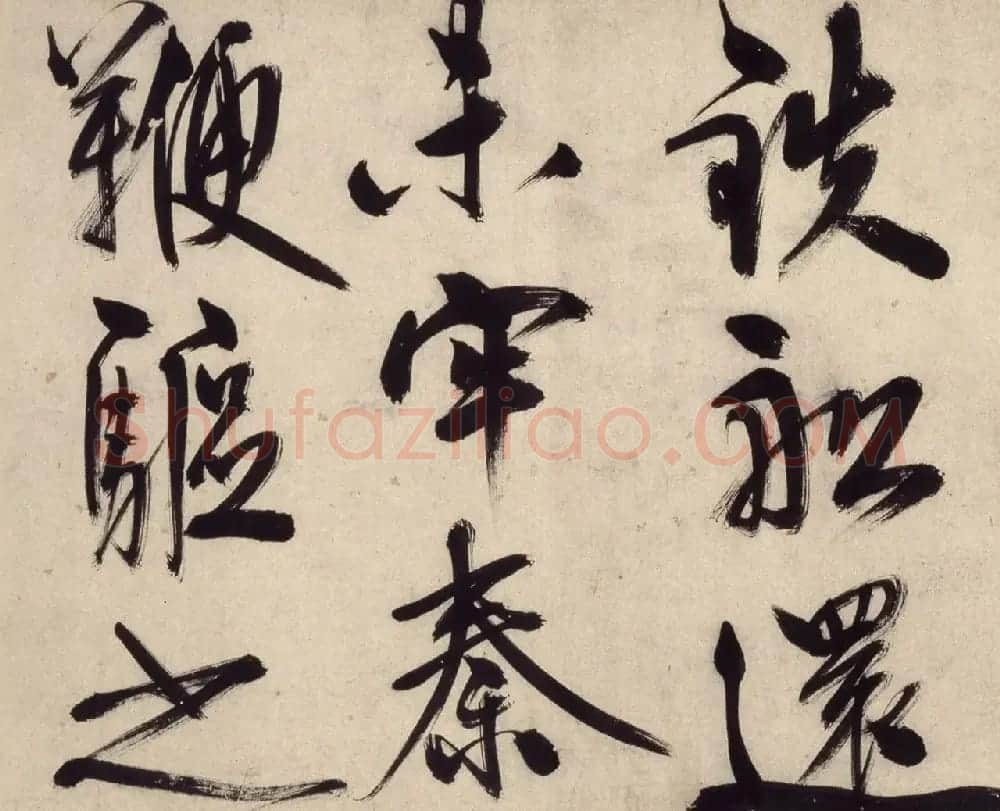 鉄船還
未牢秦
鞭驅之
Shufaziliao.COM